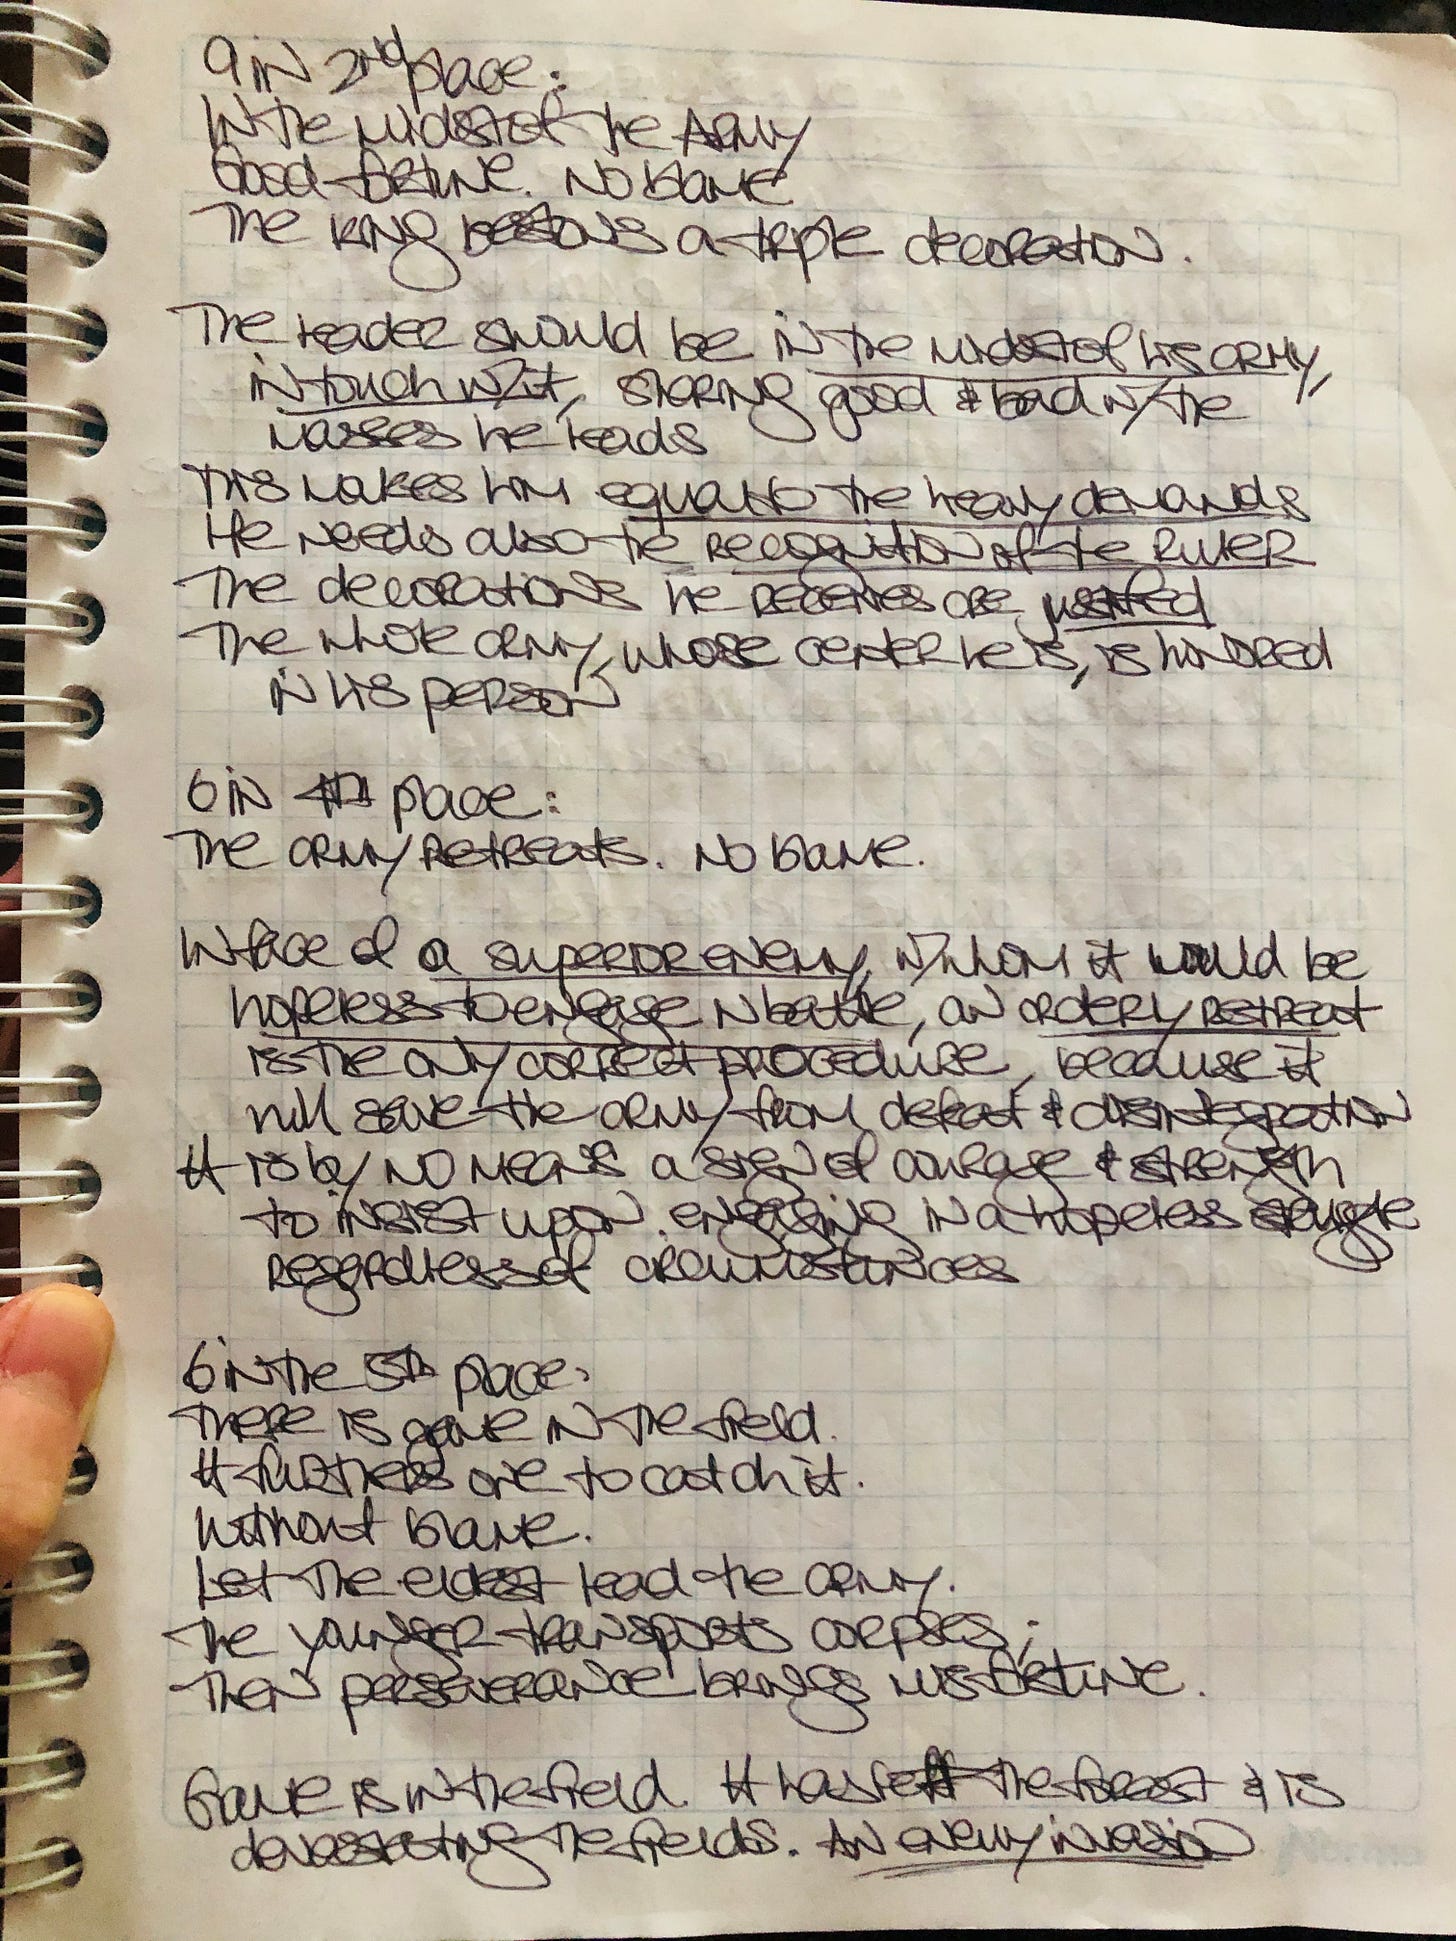 9 in 2nd place:
In the midst of the Army
Good fortune. No blame
The king bestows a triple decoration.
The leader should be in the midst of his army,
in touch w/ it, sharing good & bad w/ the
masses he leads
This makes him equal to the heavy demands
He needs also the recognition of the ruler
The decorations he receives are justified
The whole army, whose center he is, is hondred
in his person
6 in 4th place:
The army retreats. No blame.
In face of a superior enemy, w/ whom it would be
hopeless to engage in battle, an orderly retreat
is the only correct procedure, because it
will save the army from defeat & disintegration
It is by no means a sign of courage & strength
to insist upon engaging in a hopeless struggle
regardless of circumstances
6 in the 5th place:
There is game in the field.
It furthers one to catch it.
Without blame.
Let the eldest lead the army.
The younger transports corpses;
Then perseverance brings misfortune.
Game is in the field. It has left the forest & is
devastating the fields. An enemy invasion
Norma